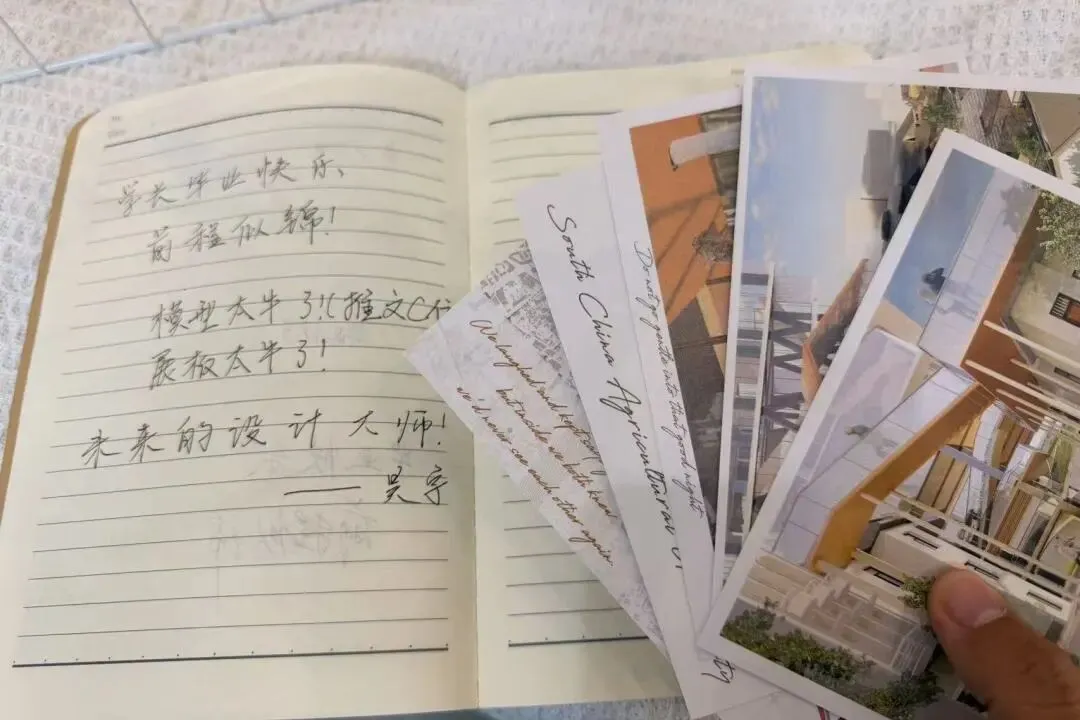 学长毕业快乐、
前程似锦！
模型太牛了！（推文C位
展板太牛了！
未来的设计大师！
——吴宇
We laughed and kept saying
but inside we both knew
we'd never see each other again
South China Agricultural
Do not go gentle into that good night